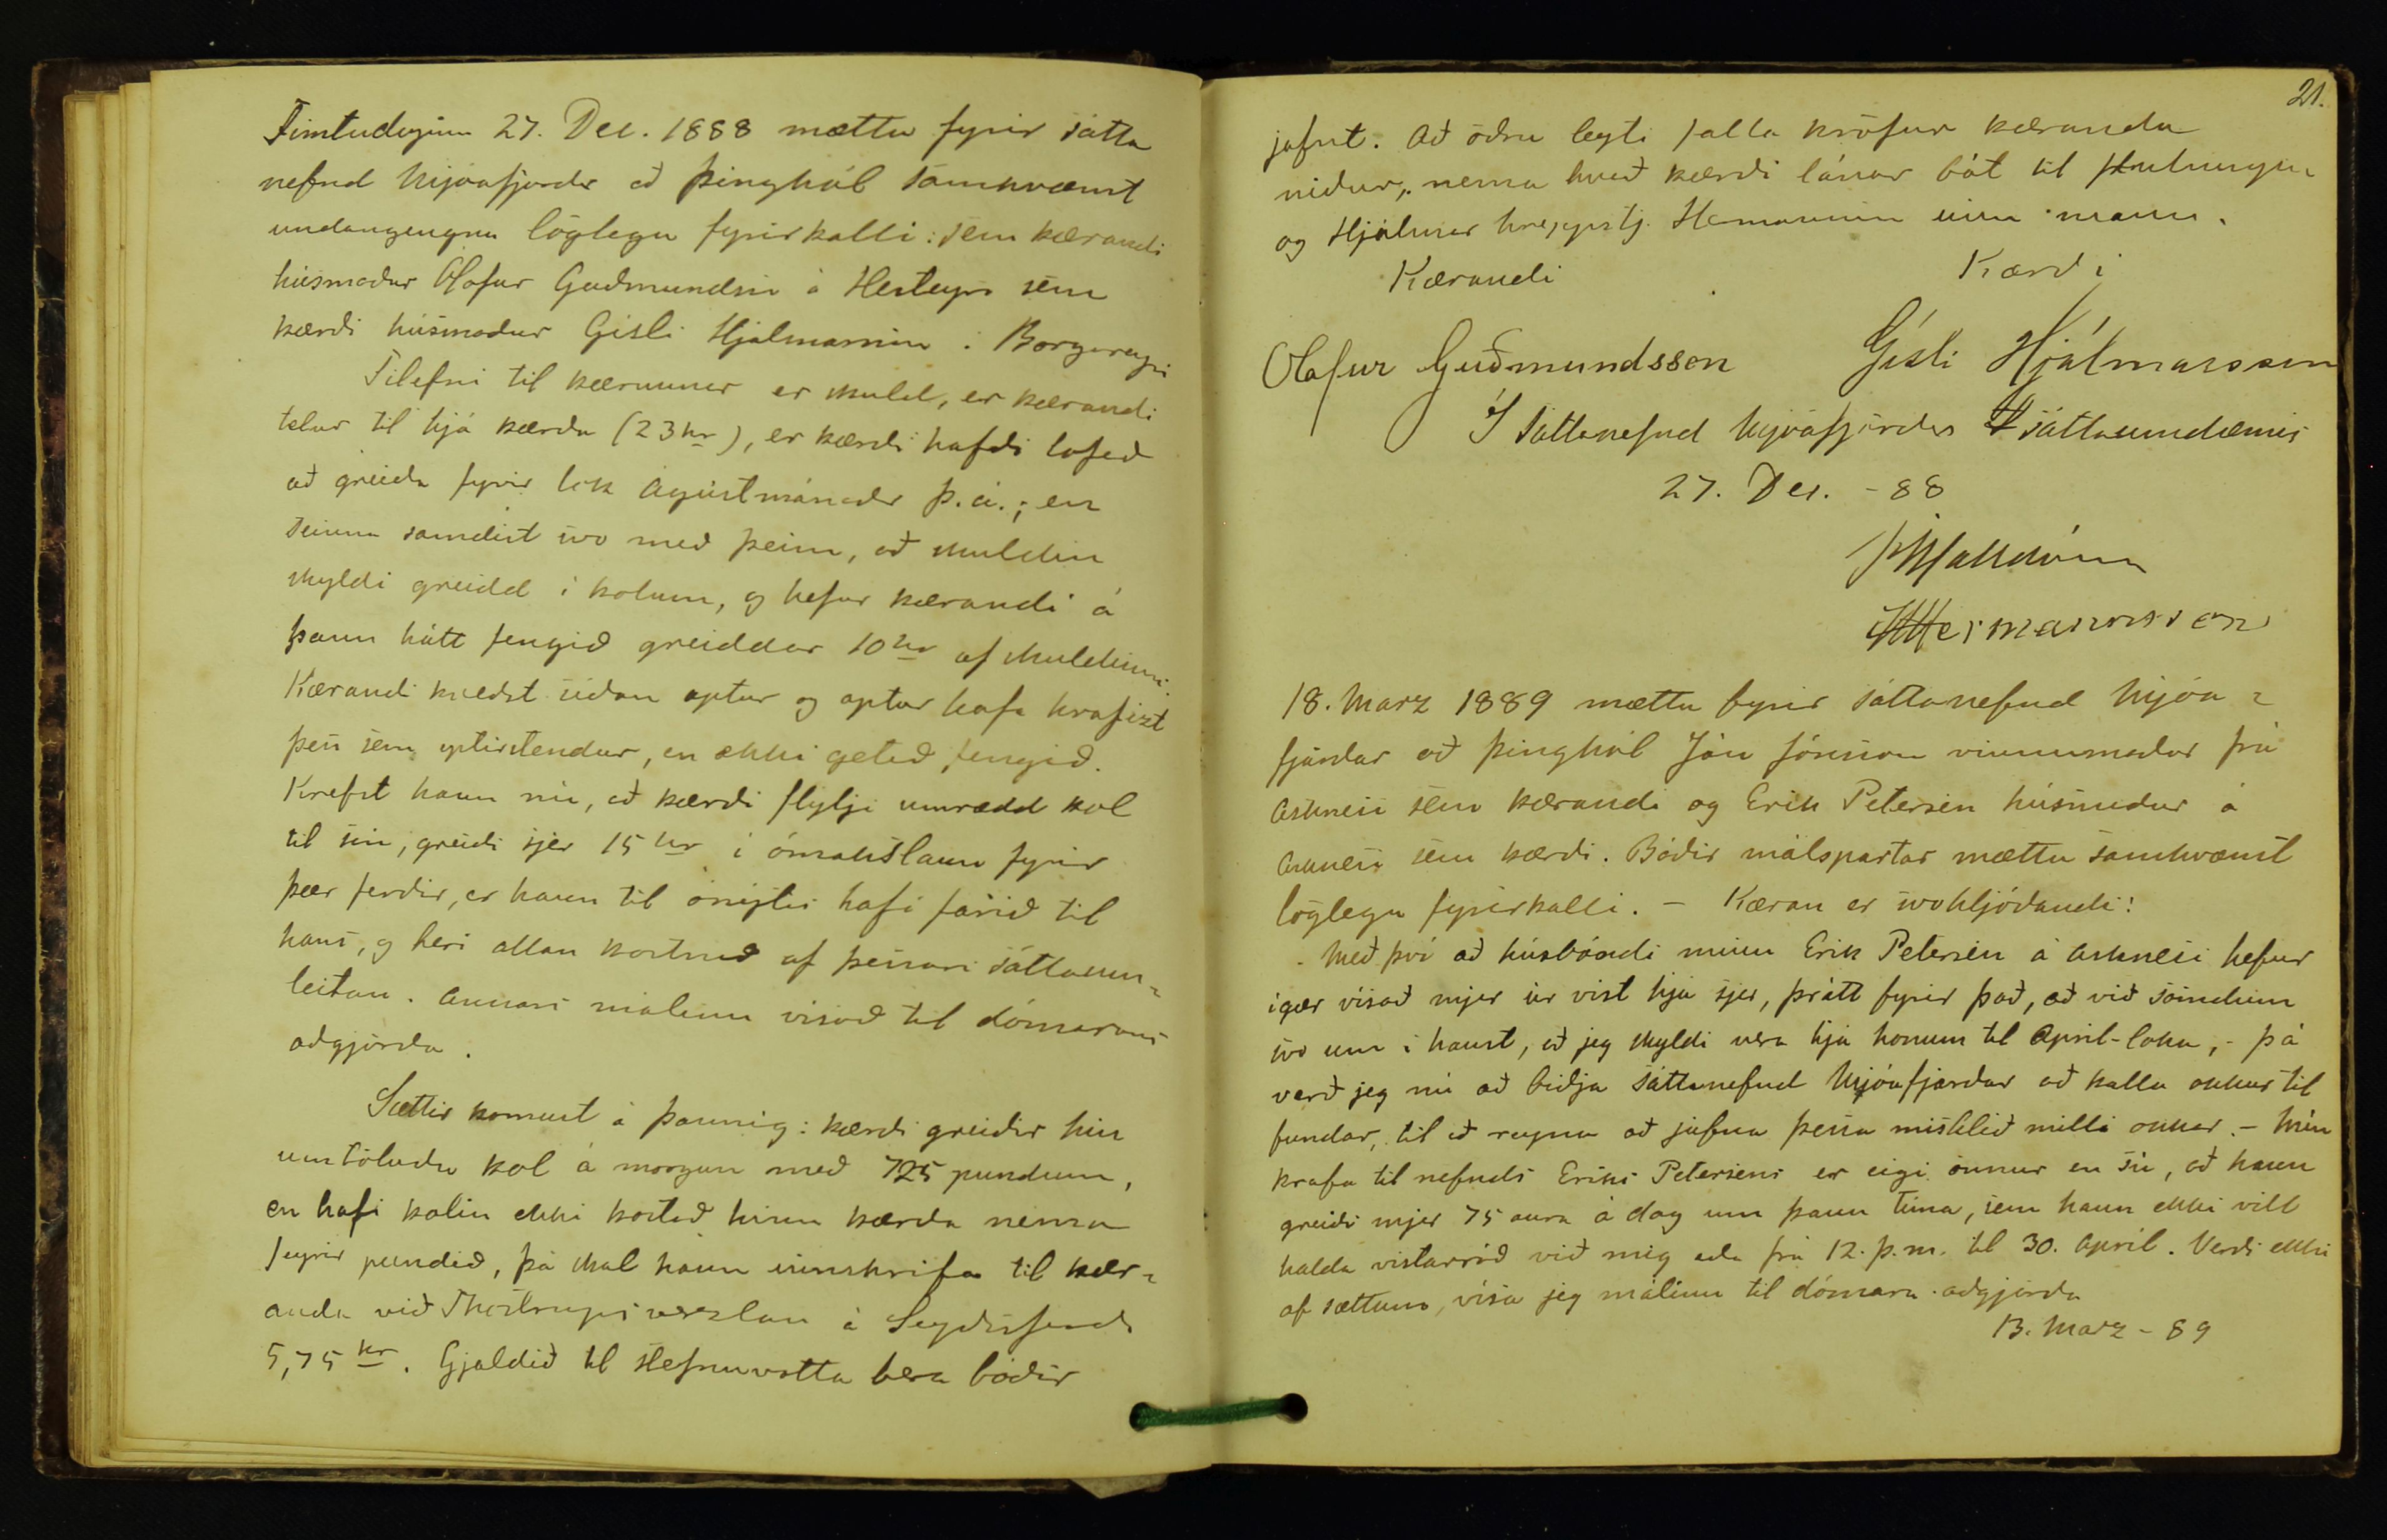 Fimtudaginn 27. Dec. 1888 mættu fyrir sátta
nefnd Mjóafjarðar að Þinghól samkvæmt
undangengnu löglegu fyrirkalli: sem kærandi
húsmaður Olafur Guðmundsson á Hesteyri sem
kærði húsmaður Gísli Hjálmarsson í Borgareyri
Tilefni til kærunnar er skuld, er kærandi
telur til hjá kærða (23 kr), er kærði hafði lofað
að greiða fyrir lok Agústmánaðar þ.á.; en
seinna samdist svo með þeim, að skuldin
skyldi greidd í kolum, og hefur kærandi á
þann hátt fengið greiddar 10 kr af skuldinni.
Kærandi kveðst síðan aptur og aptur hafa krafizt
þess sem eptirstendur, en ekki getað fengið.
Krefst hann nú, að kærði flytji umrædd kol
til sín, greiði sjer 15 kr í ómakslaun fyrir
þær ferðir, er hann til ónýtis hafi farið til
hans, og beri allan kostnað af þessari sáttaum-
leitan. Annars málinu vísað til dómarans
aðgjörða.
Sættir komust á þannig: kærði greiðir hin
umtöluðu kol á morgun með 725 pundum,
en hafi kolin ekki kostað hinn kærða nema
1 eyrir pundið, þá skal hann innskrifa til kær-
anda við Thostrups verzlan á Seyðisfirði
5,75 kr. Gjaldið til stefnuvotta bera báðir
21.
jafnt. Að öðru leyti falla kröfur kæranda
niður, nema hvað kærði lánar bát til flutnings
og Hjálmar hreppstj. Hermannsson einn mann.
Kærandi Kærði
Olafur Guðmundsson Gísli Hjálmarsson
Í Sáttanefnd Mjóafjarðar sáttaumdæmis
27. Dec. - 88
Hermannsson
18. Marz 1889 mættu fyrir sáttanefnd Mjóa-
fjarðar að Þinghól Jón Jónsson vinnumaður frá
Asknesi sem kærandi og Erik Petersen húsmaður á
Asknesi sem kærði. Báðir málspartar mættu samkvæmt
löglegu fyrirkalli. - Kæran er svohljóðandi:
Með því að húsbóndi minn Erik Petersen á Asknesi hefur
ígær vísað mjer úr vist hjá sjer, þrátt fyrir það, að við sömdum
svo um í haust, að jeg skyldi vera hjá honum til April-loka, - þá
verð jeg nú að biðja Sáttanefnd Mjóafjarðar að kalla okkur til
fundar, til að reyna að jafna þessa misklíð milli okkar. - Mín
krafa til nefnds Eriks Petersens er eigi önnur en sú, að hann
greiði mjer 75 aura á dag um þann tíma, sem hann ekki vill
halda vistarráð við mig eða frá 12. þ.m. til 30. Apríl. Verði ekki
af sættum, vísa jeg málinu til dómara aðgjörða
13. Marz - 89